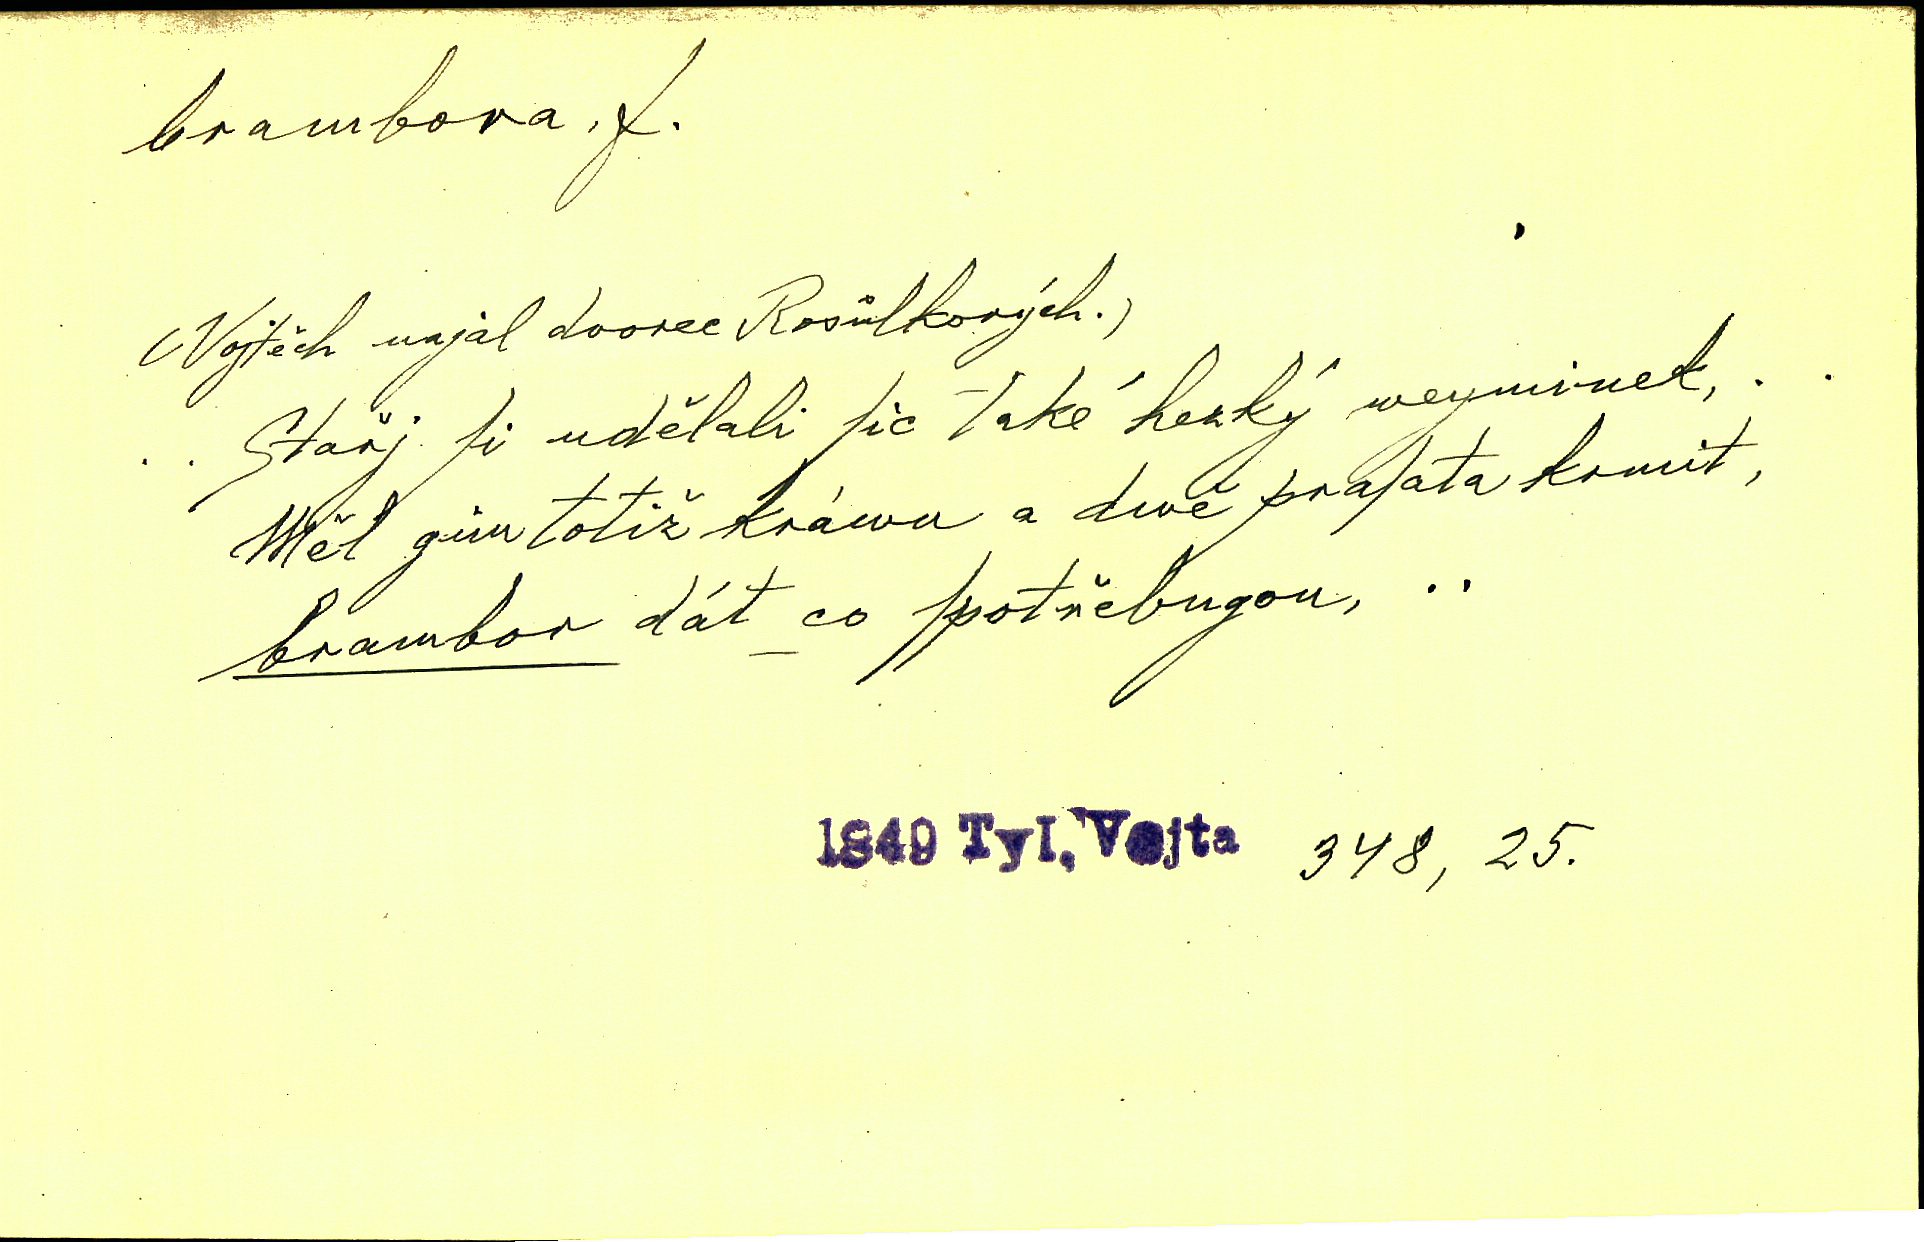 brambora, f.
(Vojtěch najal dvorec Rosůlkových.)
.. Starj ſi udělali ſic také hezký weyminek, ..
Měl gim totiž kráwu a dwě praſata krmit,
brambor dát co potřebugou, ..
1849 Tyl, Vojta 348, 25.